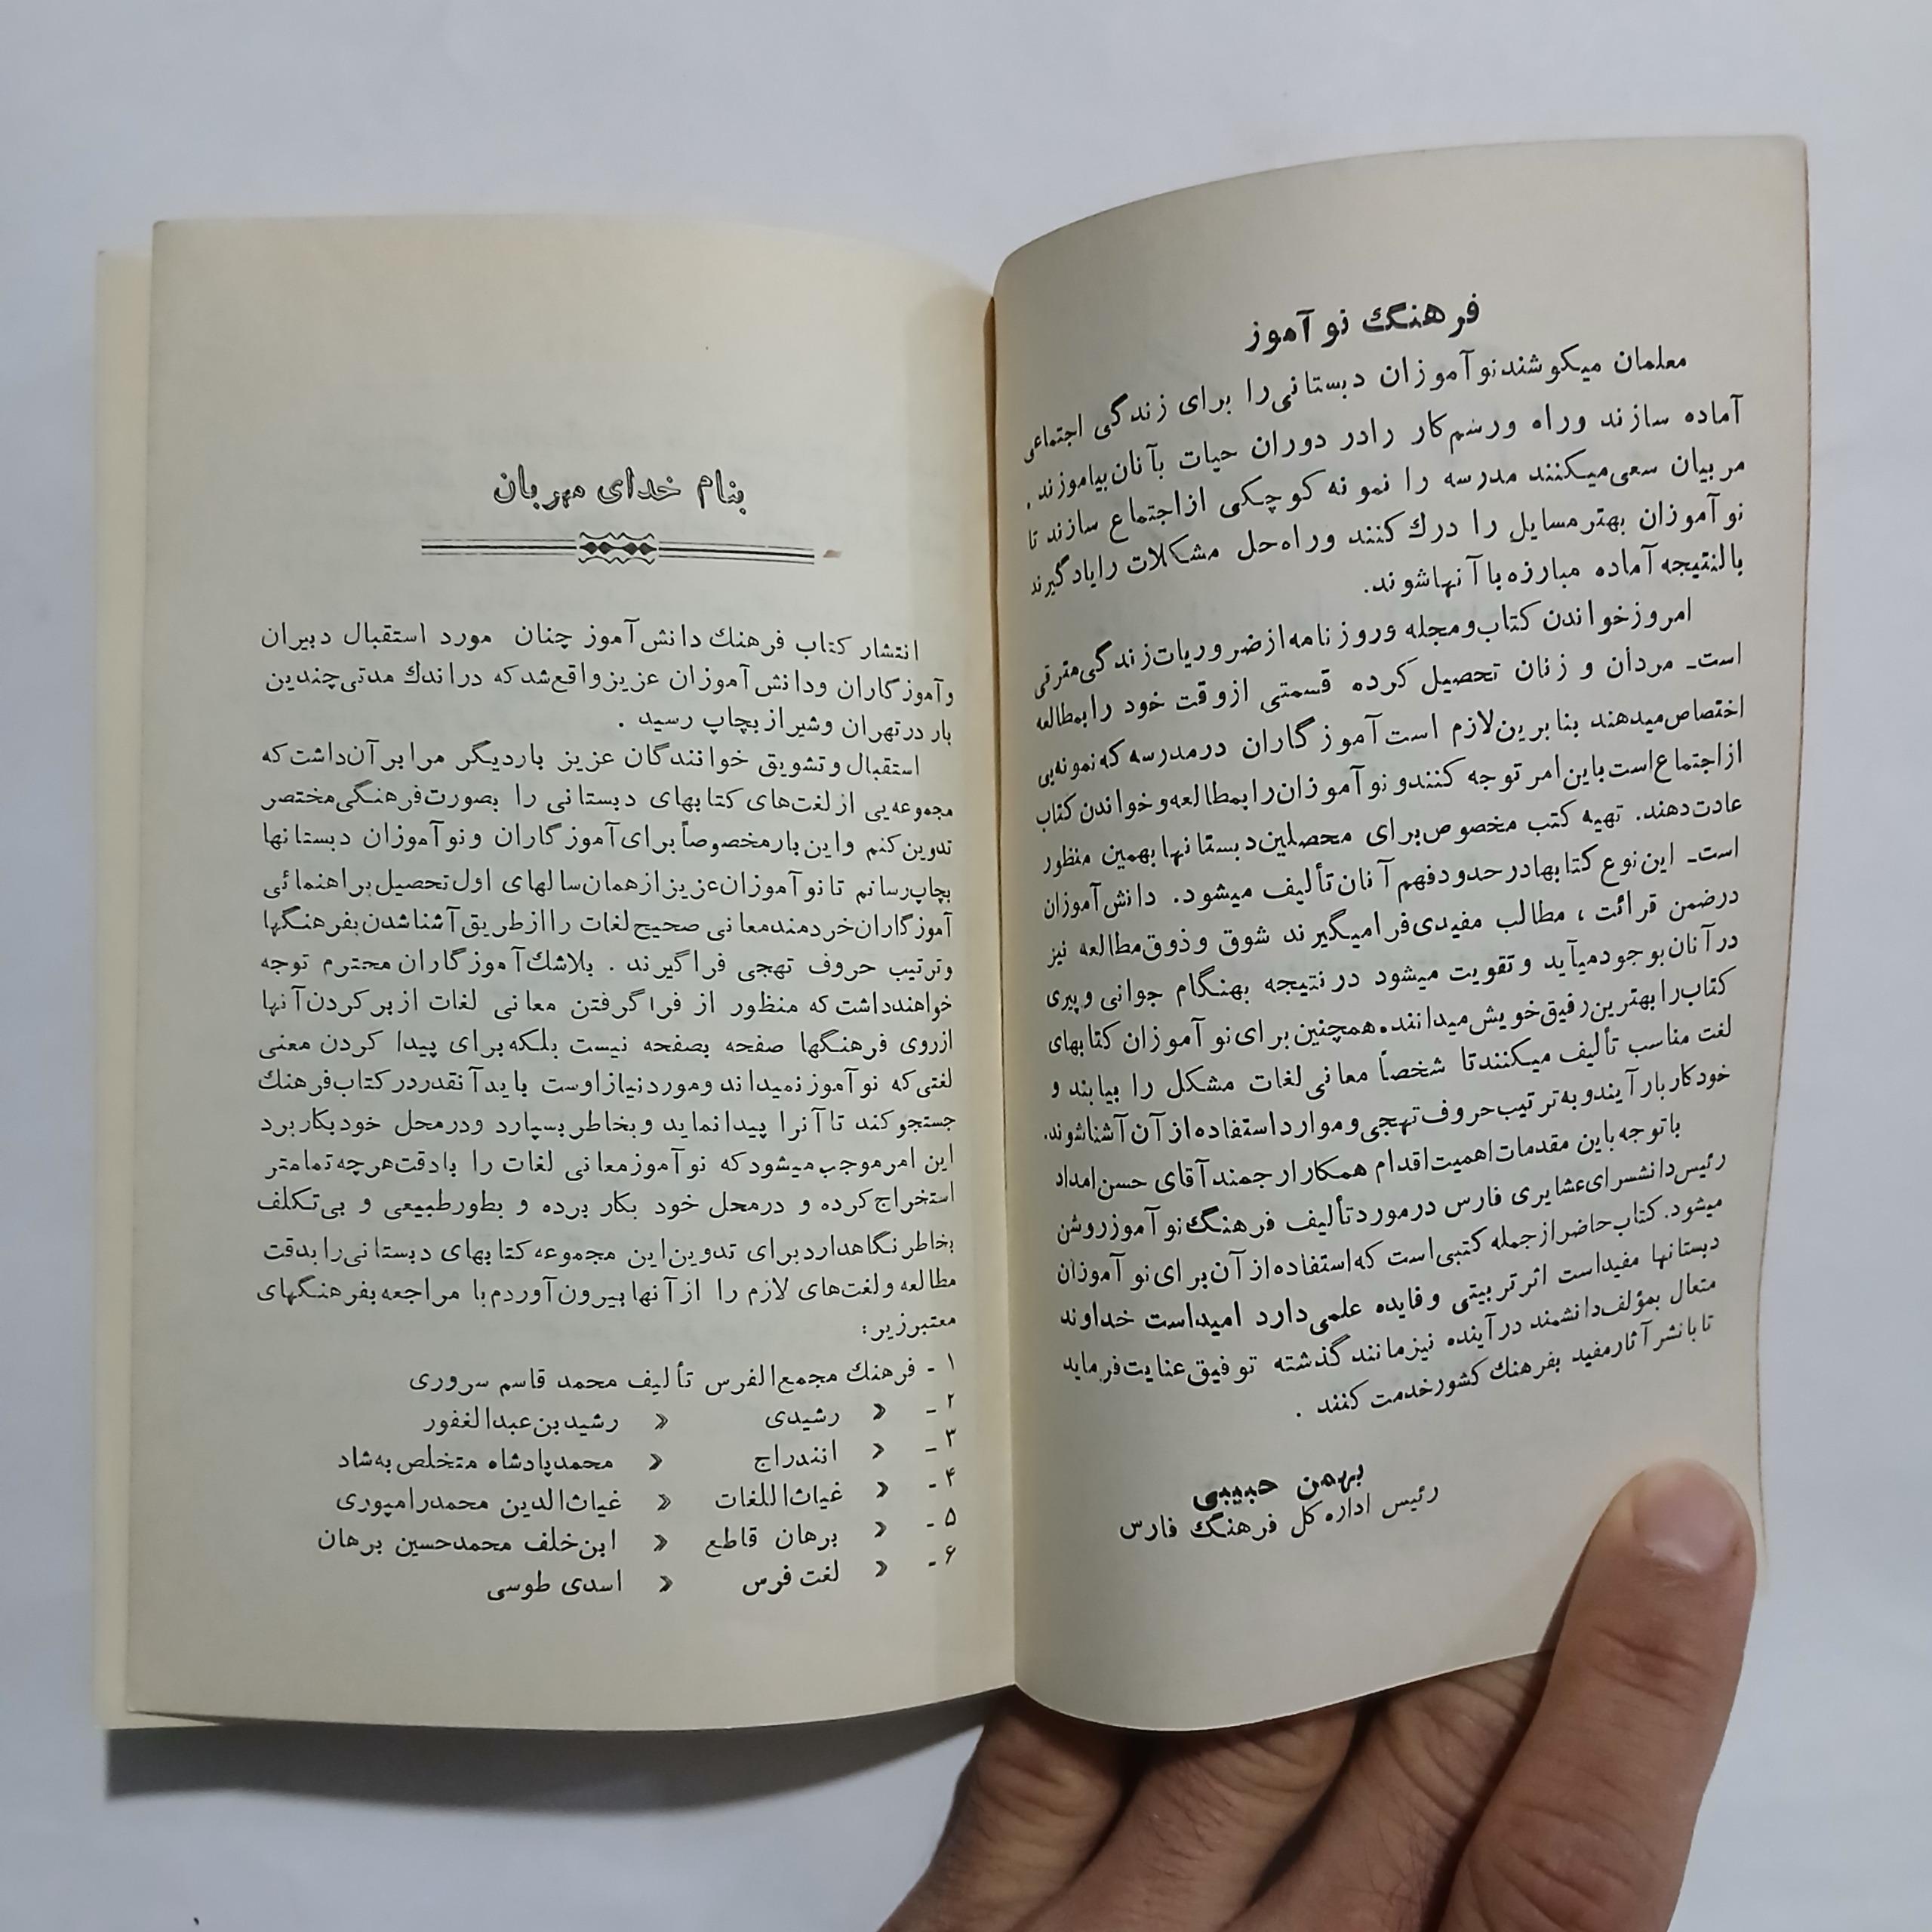 فرهنگ نو آموز
معلمان میکوشند نو آموزان دبستانی را برای زندگی اجتماعی
آماده سازند وراه ورسم کار رادر دوران حیات بآنان بیاموزند .
مربیان سعی میکنند مدرسه را نمونه کوچکی ازاجتماع سازند تا
نو آموزان بهتر مسایل را درك کنند وراه حل مشکلات رایادگیرند
بالنتیجه آماده مبارزه با آنهاشوند.
امروز خواندن کتاب و مجله و روزنامه از ضروریات زندگی مترقی
است ـ مردان و زنان تحصیل کرده قسمتی ازوقت خود را بمطالعه
اختصاص میدهند بنا برین لازم است آموزگاران درمدرسه که نمونه یی
از اجتماع است باین امر توجه کنند و نو آموزان را بمطالعه و خواندن کتاب
عادت دهند. تهیه کتب مخصوص برای محصلین دبستانها بهمین منظور
است ـ این نوع کتابها در حدود فهم آنان تألیف میشود. دانش آموزان
درضمن قرائت ، مطالب مفیدی فرا میگیرند شوق و ذوق مطالعه نیز
در آنان بوجود میآید و تقویت میشود در نتیجه بهنگام جوانی و پیری
کتاب را بهترین رفیق خویش میدانند همچنین برای نو آموزان کتابهای
لغت مناسب تألیف میکنند تا شخصاً معانی لغات مشکل را بیابند و
خودکار بار آیند و به ترتیب حروف تهجی و موارد استفاده از آن آشنا شوند.
با توجه باین مقدمات اهمیت اقدام همکار ارجمند آقای حسن امداد
رئیس دانشسرای عشایری فارس درمورد تألیف فرهنگ نو آموز روشن
میشود. کتاب حاضر از جمله کتبی است که استفاده از آن برای نو آموزان
دبستانها مفید است اثر تربیتی و فایده علمی دارد امید است خداوند
متعال بمؤلف دانشمند در آینده نیز مانند گذشته توفیق عنایت فرماید
تا با نشر آثار مفید بفرهنك کشور خدمت کنند .
بهمن حبیبی
رئیس اداره کل فرهنگ فارس
بنام خدای مهربان
انتشار کتاب فرهنك دانش آموز چنان مورد استقبال دبیران
و آموزگاران ودانش آموزان عزیز واقع شد که در اندك مدتی چندین
بار در تهران وشیراز بچاپ رسید .
استقبال و تشویق خوانندگان عزیز باردیگر مرا بر آن داشت که
مجموعه یی از لغت های کتابهای دبستانی را بصورت فرهنگی مختصر
تدوین کنم واین بار مخصوصاً برای آموزگاران ونو آموزان دبستانها
بچاپ رسانم تا نو آموزان عزیز از همان سالهای اول تحصیل براهنمائی
آموزگاران خردمند معانی صحیح لغات را از طریق آشنا شدن بفرهنگها
و ترتیب حروف تهجی فراگیرند . بلاشك آموزگاران محترم توجه
خواهند داشت که منظور از فرا گرفتن معانی لغات ازبر کردن آنها
ازروی فرهنگها صفحه بصفحه نیست بلکه برای پیدا کردن معنی
لغتی که نو آموز نمیداند و مورد نیاز اوست باید آنقدر در کتاب فرهنك
جستجو کند تا آنرا پیدا نماید و بخاطر بسپارد ودرمحل خود بکار برد
این امر موجب میشود که نو آموز معانی لغات را با دقت هرچه تمامتر
استخراج کرده و درمحل خود بکار برده و بطور طبیعی و بی تکلف
بخاطر نگاهدارد برای تدوین این مجموعه کتابهای دبستانی را بدقت
مطالعه و لغت های لازم را از آنها بیرون آوردم با مراجعه بفرهنگهای
معتبر زیر:
۱ ـ فرهنك مجمع الفرس تألیف محمد قاسم سروری
۲ ـ « رشیدی « رشید بن عبدالغفور
۳ ـ « انندراج « محمد پادشاه متخلص به شاد
۴ ـ « غیاث اللغات « غیاث الدین محمد رامپوری
۵ ـ « برهان قاطع « ابن خلف محمدحسین برهان
۶ ـ « لغت فرس « اسدی طوسی